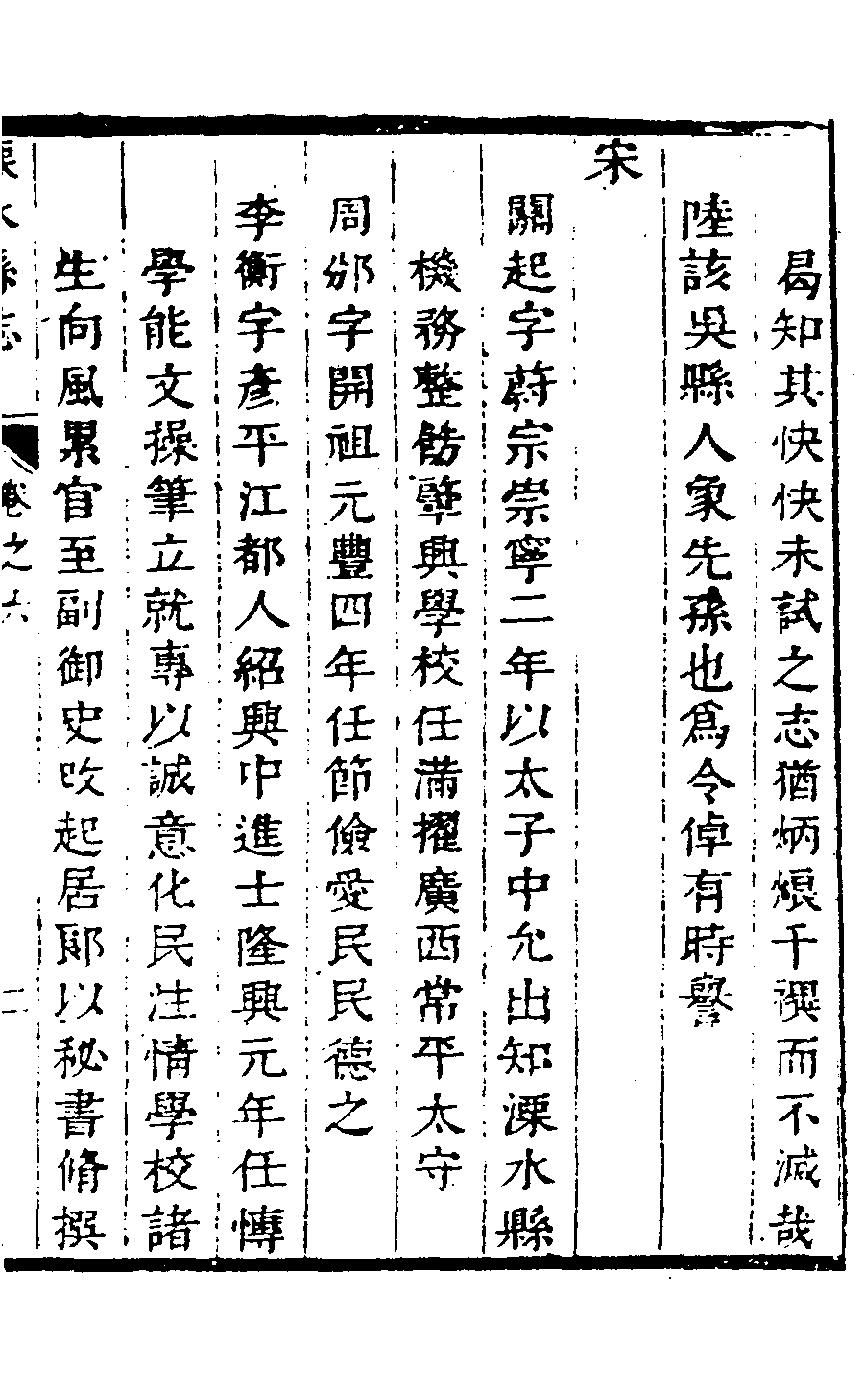 曷知其怏怏未試之志猶炳烺千禩而不滅哉
陸該吳縣人象先孫也爲令倬有時譽
宋
關起字蔚宗崇寧二年以太子中允出知溧水縣
機務整飭肇興學校任滿擢廣西常平太守
周邠字開祖元豐四年任節儉愛民民德之
李衡字彥平江都人紹興中進士隆興元年任慱
學能文操筆立就專以誠意化民注情學校諸
生向風累官至副御史改起居郎以秘書脩撰
溧水縣志 卷之六 二